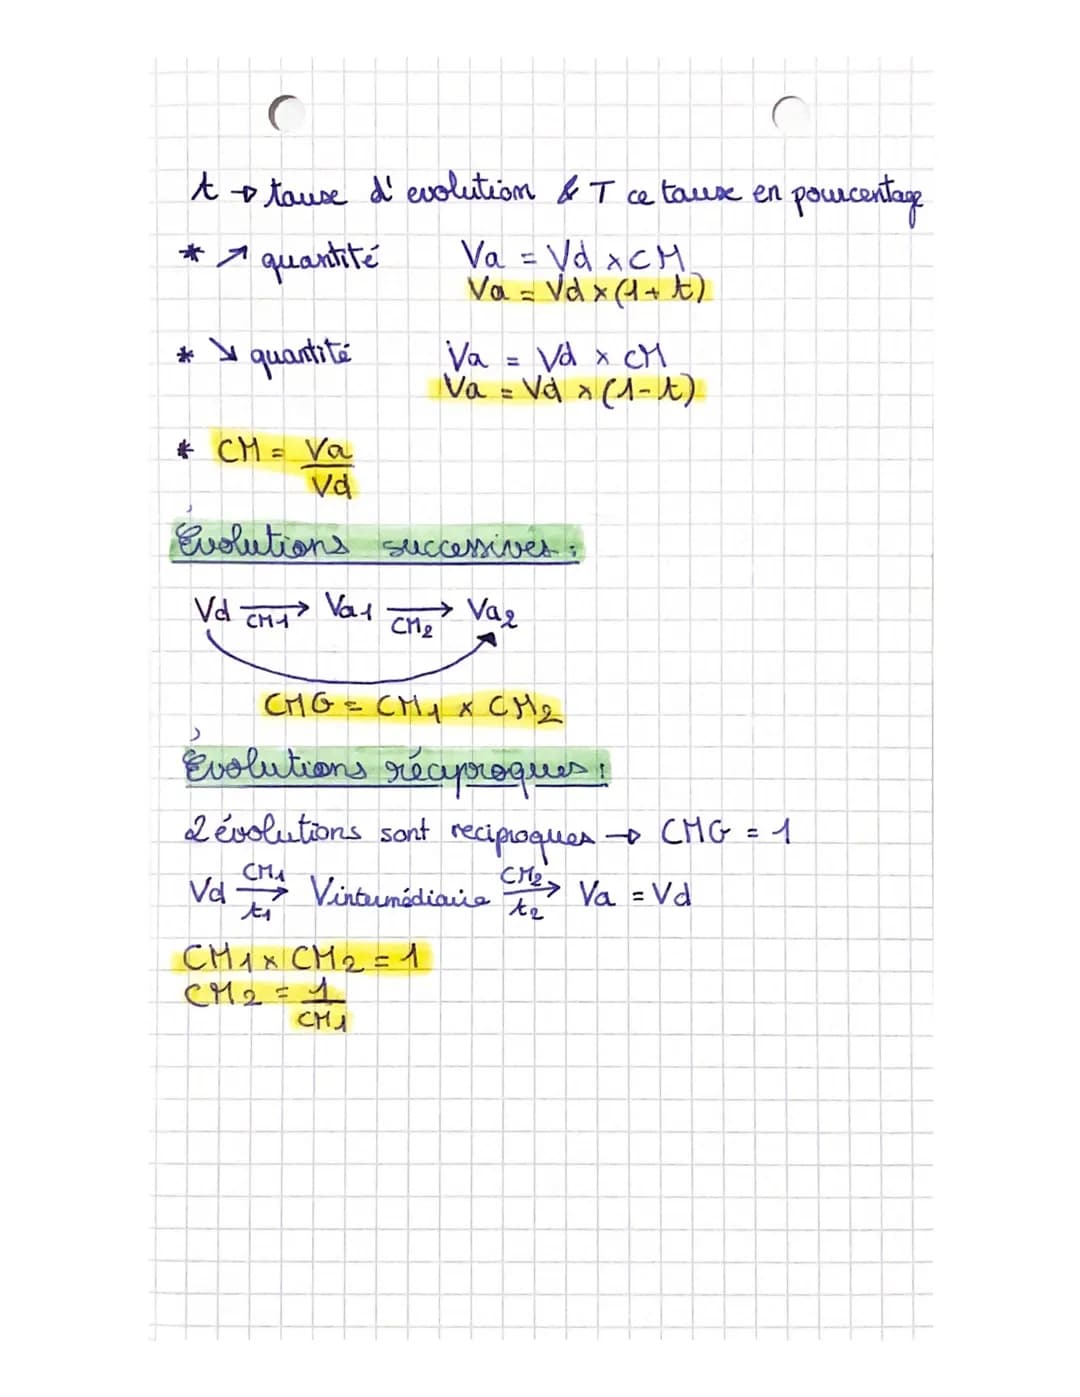 t → taux d'evolution & T ce taux en pourcentage
* ↗ quantité Va = Vd × CM
Va = Vd × (1 + t)
* ↘ quantité Va = Vd × CM
Va = Vd × (1 - t)
* CM = Va
Vd
Évolutions successives :
Vd → Va1 → Va2
CM1 CM2
CMG = CM1 × CM2
Évolutions réciproques :
2 évolutions sont reciproques → CMG = 1
CM1 CM2
Vd → Vintermédiaire → Va = Vd
t1 t2
CM1 × CM2 = 1
CM2 = 1
CM1